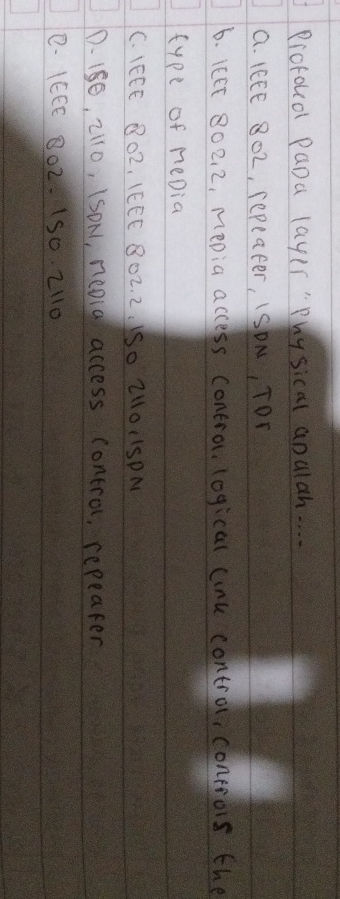 Protocol pada layer "Physical adalah....
a. IEEE 802, repeater, ISDN, TDr
b. IEEE 802.2, Media access control, logical link control, controls the
type of media
C. IEEE 802, IEEE 802.2, ISO 2110, ISDN
D. ISO, 2110, ISDN, Media access control, repeater
e. IEEE 802. ISO. 2110